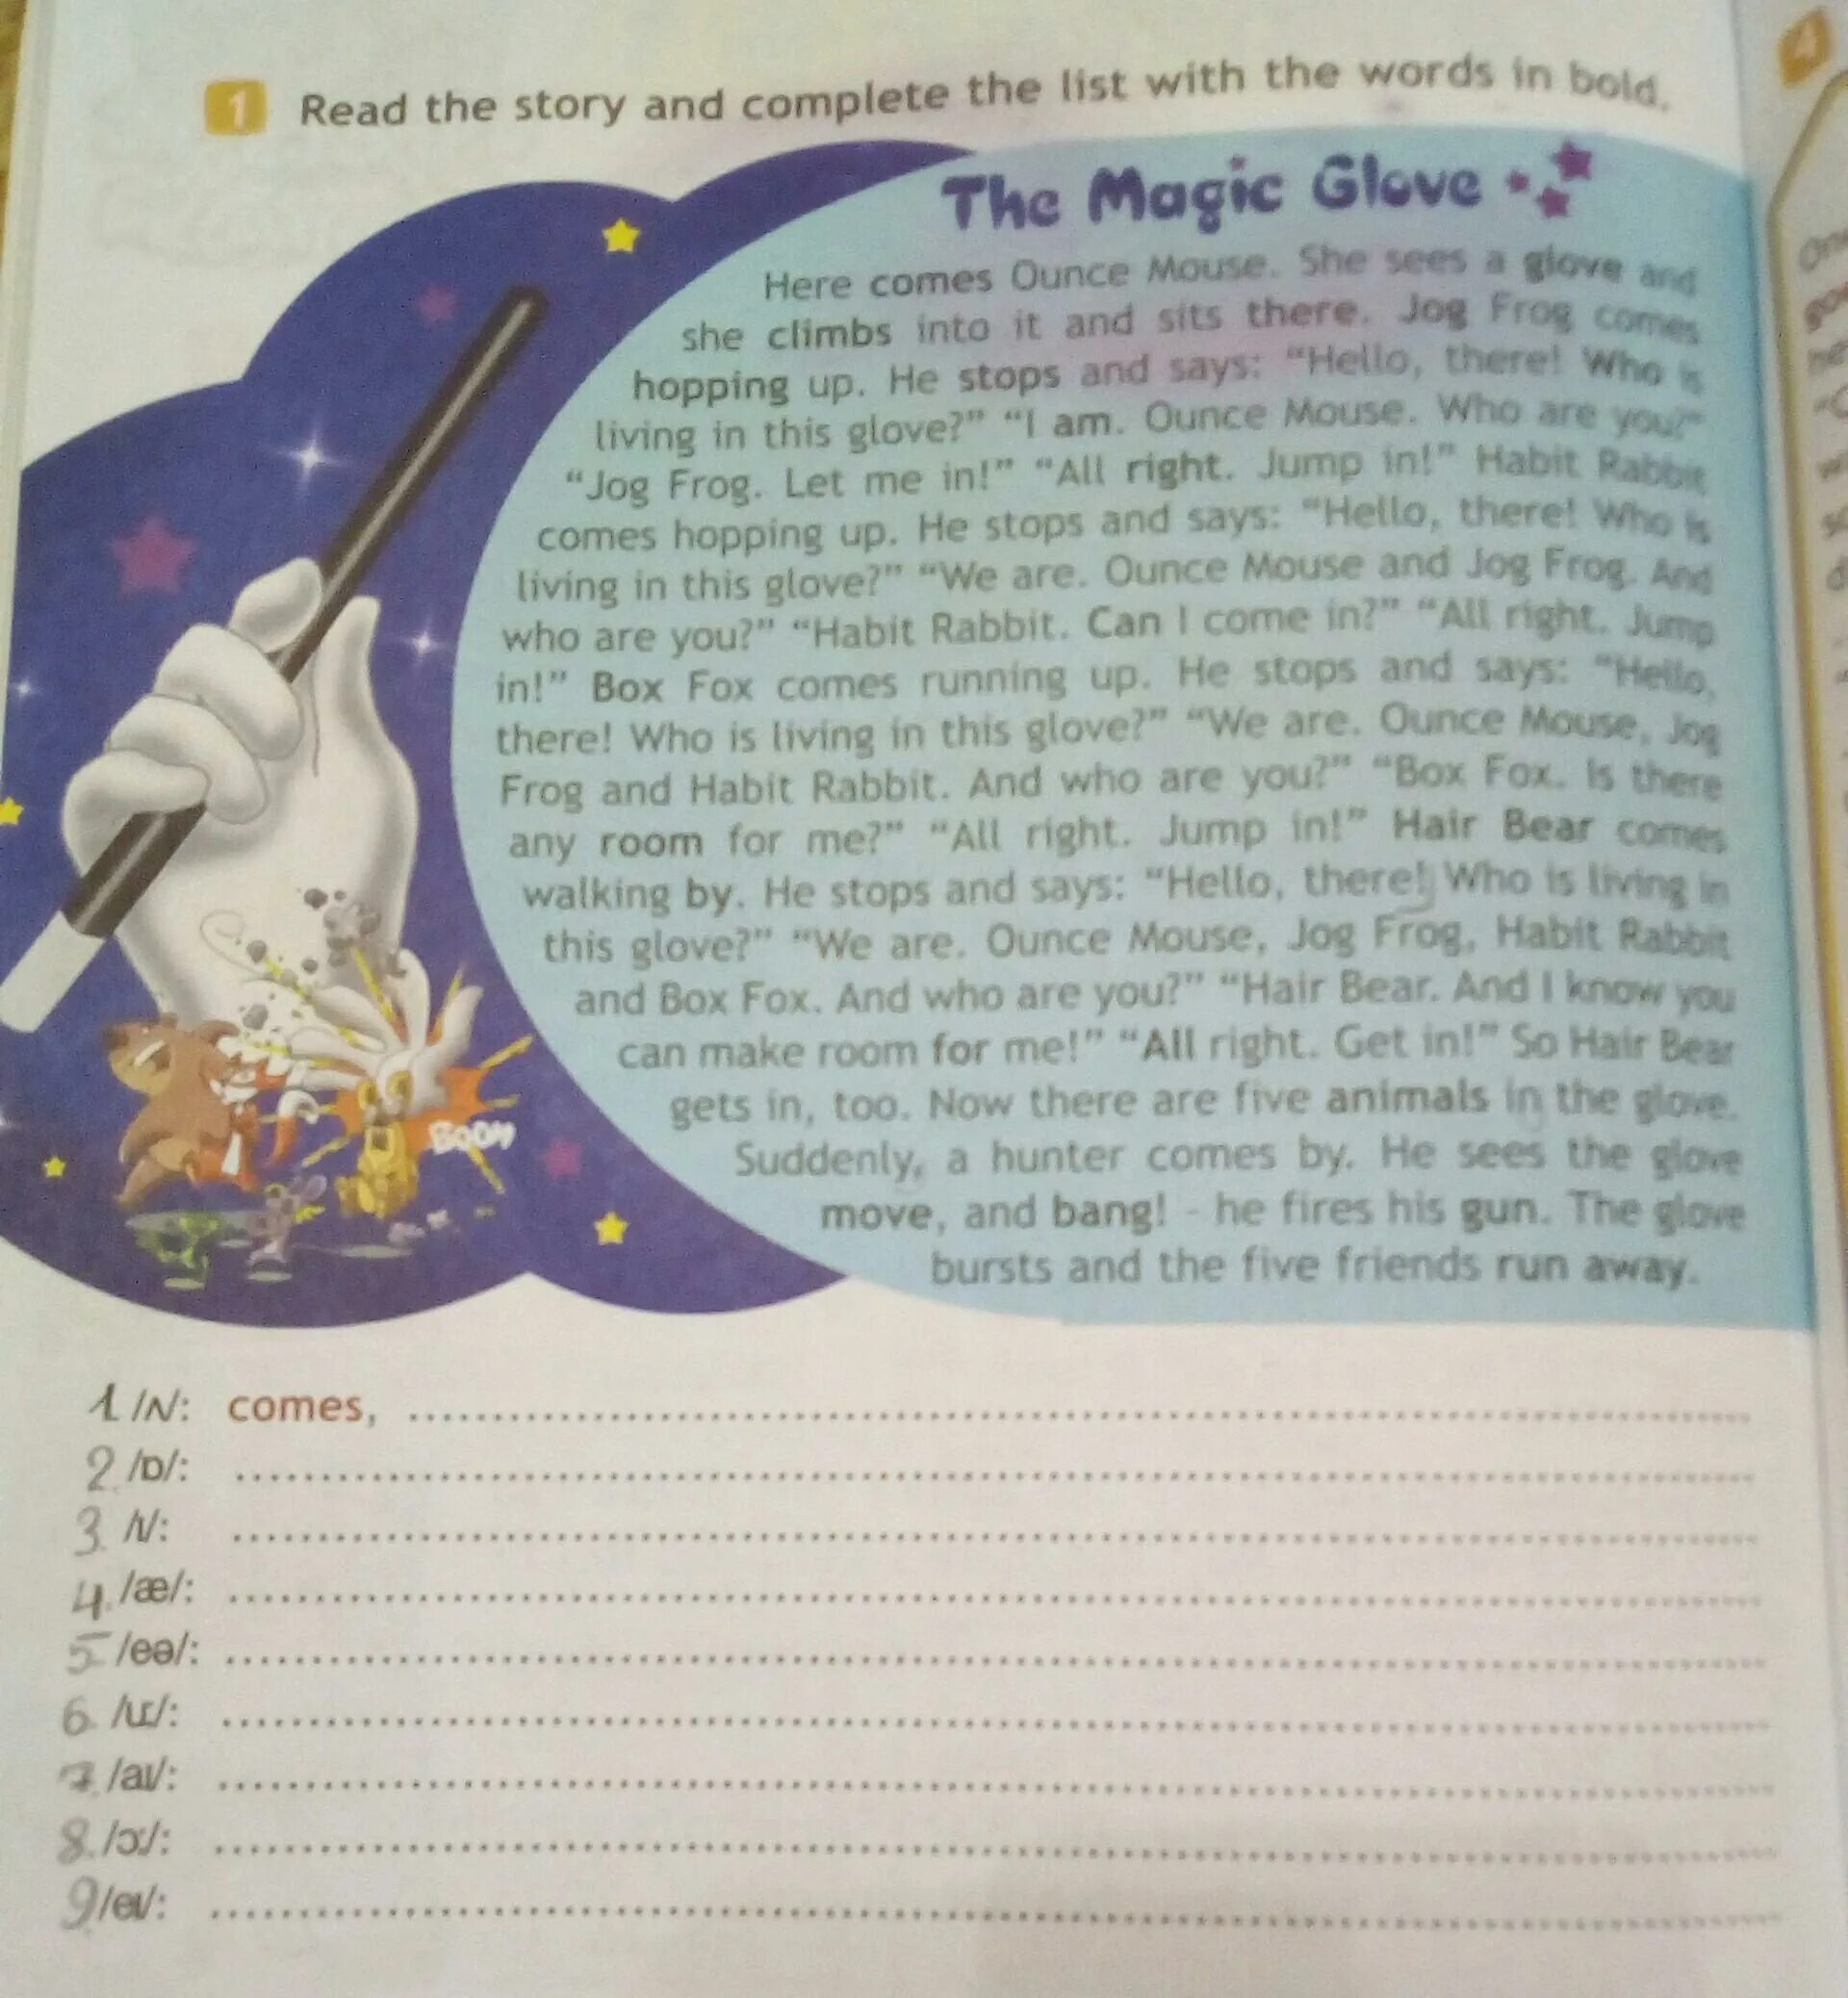 1 Read the story and complete the list with the words in bold.
The Magic Glove
Here comes Ounce Mouse. She sees a glove and
she climbs into it and sits there. Jog Frog comes
hopping up. He stops and says: “Hello, there! Who is
living in this glove?” “I am. Ounce Mouse. Who are you?”
“Jog Frog. Let me in!” “All right. Jump in!” Habit Rabbit
comes hopping up. He stops and says: “Hello, there! Who is
living in this glove?” “We are. Ounce Mouse and Jog Frog. And
who are you?” “Habit Rabbit. Can I come in?” “All right. Jump
in!” Box Fox comes running up. He stops and says: “Hello,
there! Who is living in this glove?” “We are. Ounce Mouse, Jog
Frog and Habit Rabbit. And who are you?” “Box Fox. Is there
any room for me?” “All right. Jump in!” Hair Bear comes
walking by. He stops and says: “Hello, there! Who is living in
this glove?” “We are. Ounce Mouse, Jog Frog, Habit Rabbit
and Box Fox. And who are you?” “Hair Bear. And I know you
can make room for me!” “All right. Get in!” So Hair Bear
gets in, too. Now there are five animals in the glove.
Suddenly, a hunter comes by. He sees the glove
move, and bang! - he fires his gun. The glove
bursts and the five friends run away.
BOOM
1 /ʌ/: comes,
2 /ɒ/:
3 /ɪ/:
4. /æ/:
5 /eə/:
6. /uː/:
7. /aɪ/:
8. /ɔː/:
9 /eɪ/:
4